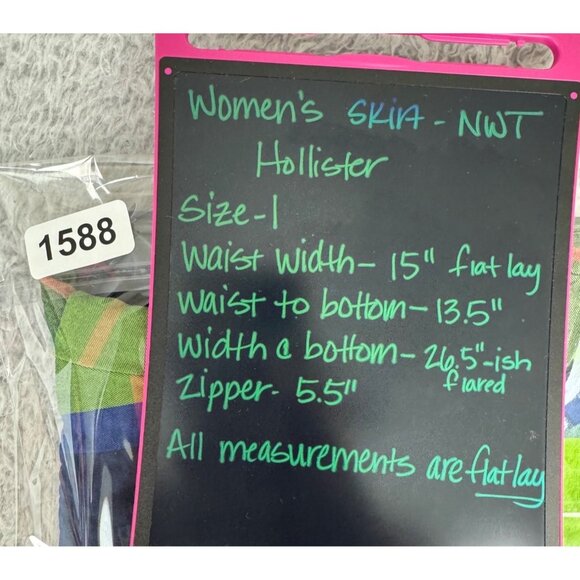 Women's SKirt - NWT
Hollister
Size-1
Waist width- 15" flat lay
Waist to bottom- 13.5"
Width @ bottom- 26.5"-ish
flared
Zipper- 5.5"
All measurements are flat lay
1588